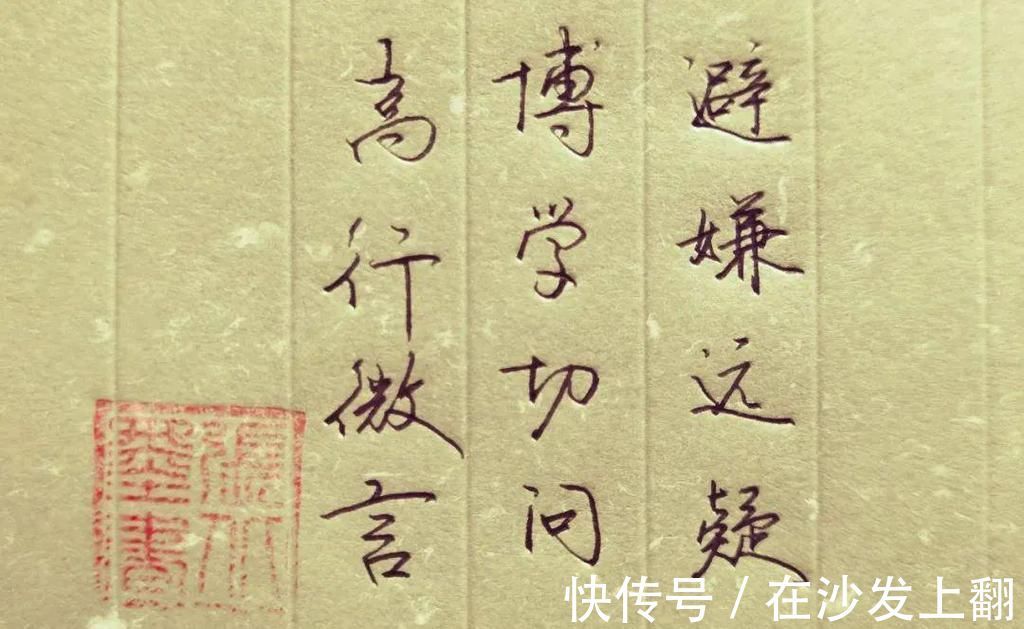 避嫌远疑
博学切问
高行微言
快传号/在沙发上翻